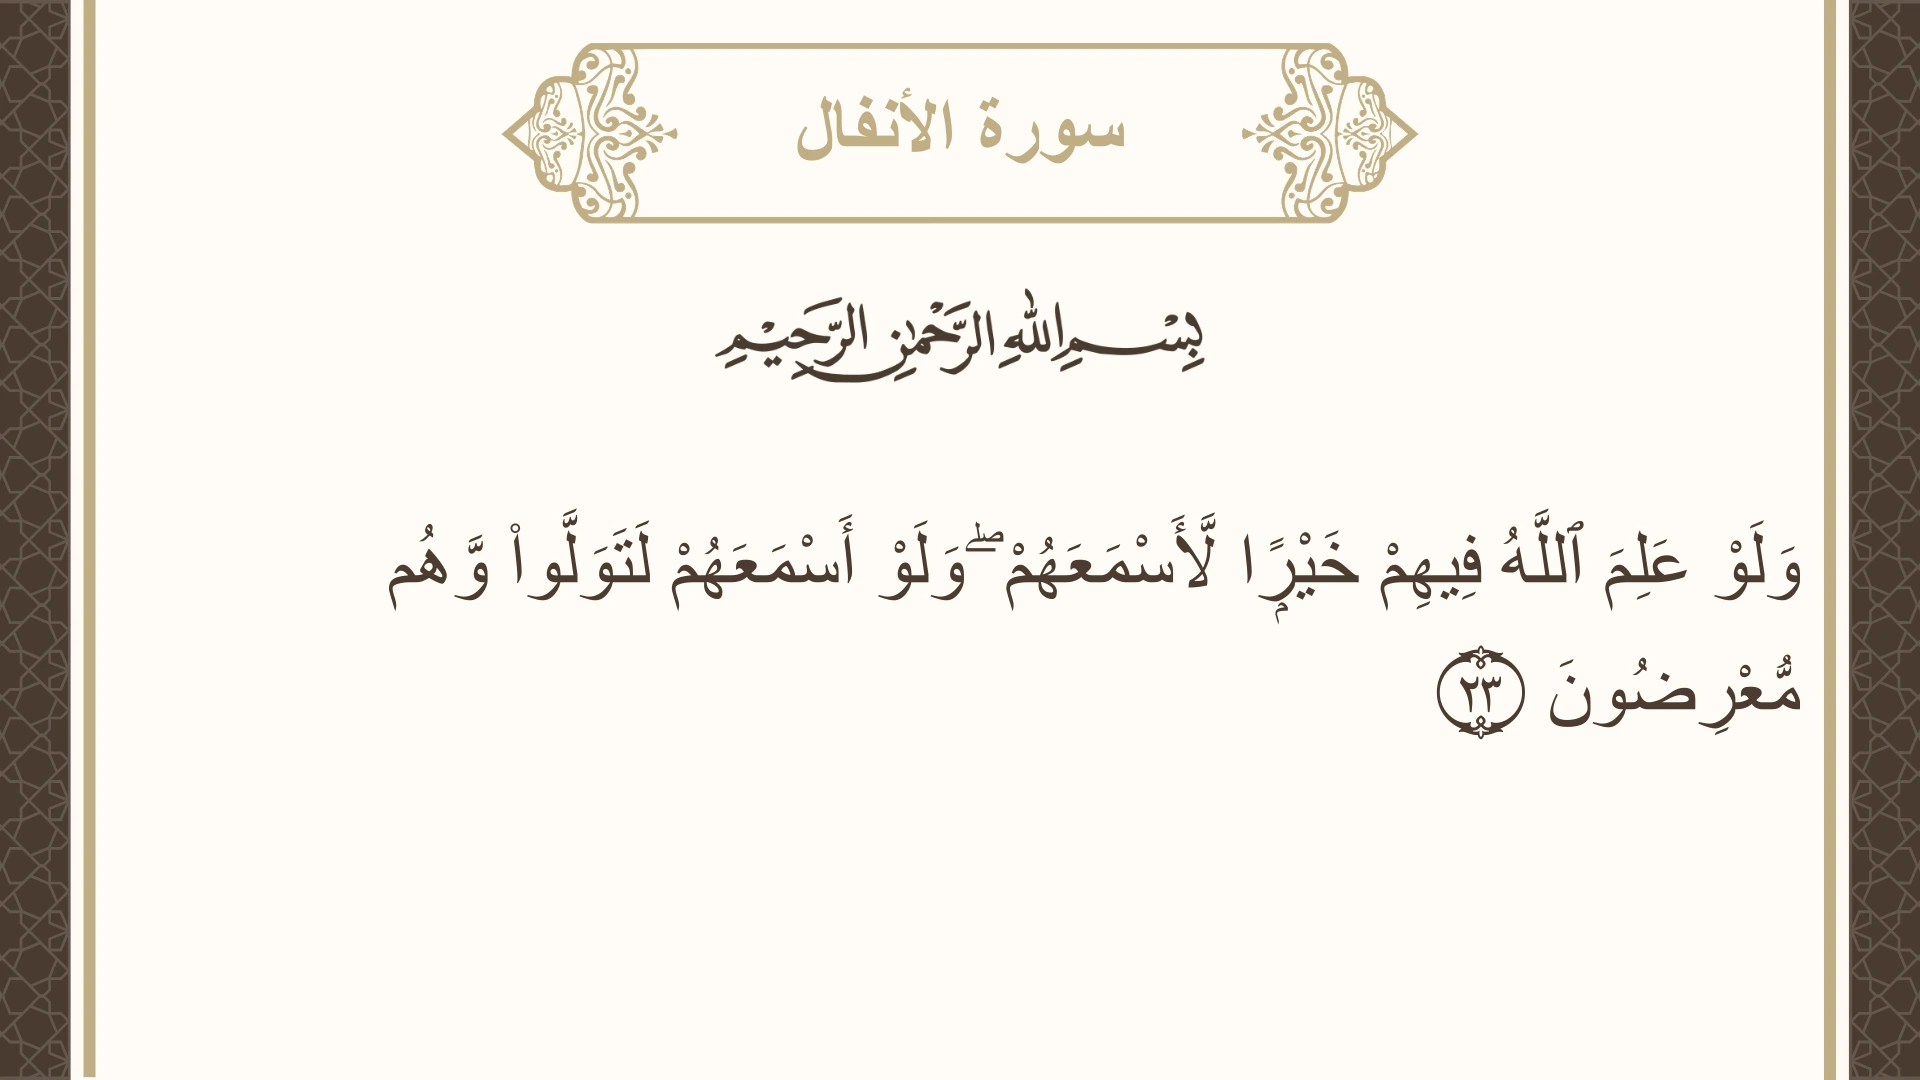 سورة الأنفال
بِسْمِ اللهِ الرَّحْمٰنِ الرَّحِيْمِ
وَلَوْ عَلِمَ ٱللَّهُ فِيهِمْ خَيْرًۭا لَّأَسْمَعَهُمْ ۖ وَلَوْ أَسْمَعَهُمْ لَتَوَلَّوا۟ وَّهُم
مُّعْرِضُونَ ٢٣